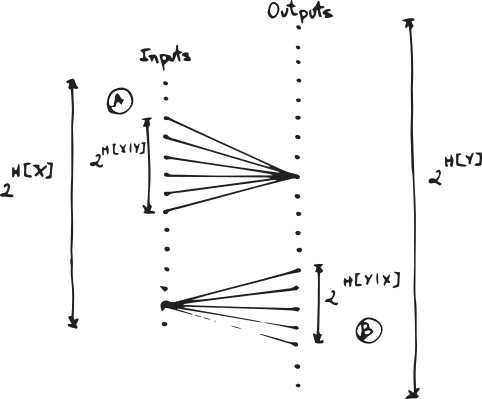 Outputs
Inputs
A
2^H[X|Y]
2^H[X]
2^H[Y]
2^H[Y|X]
B